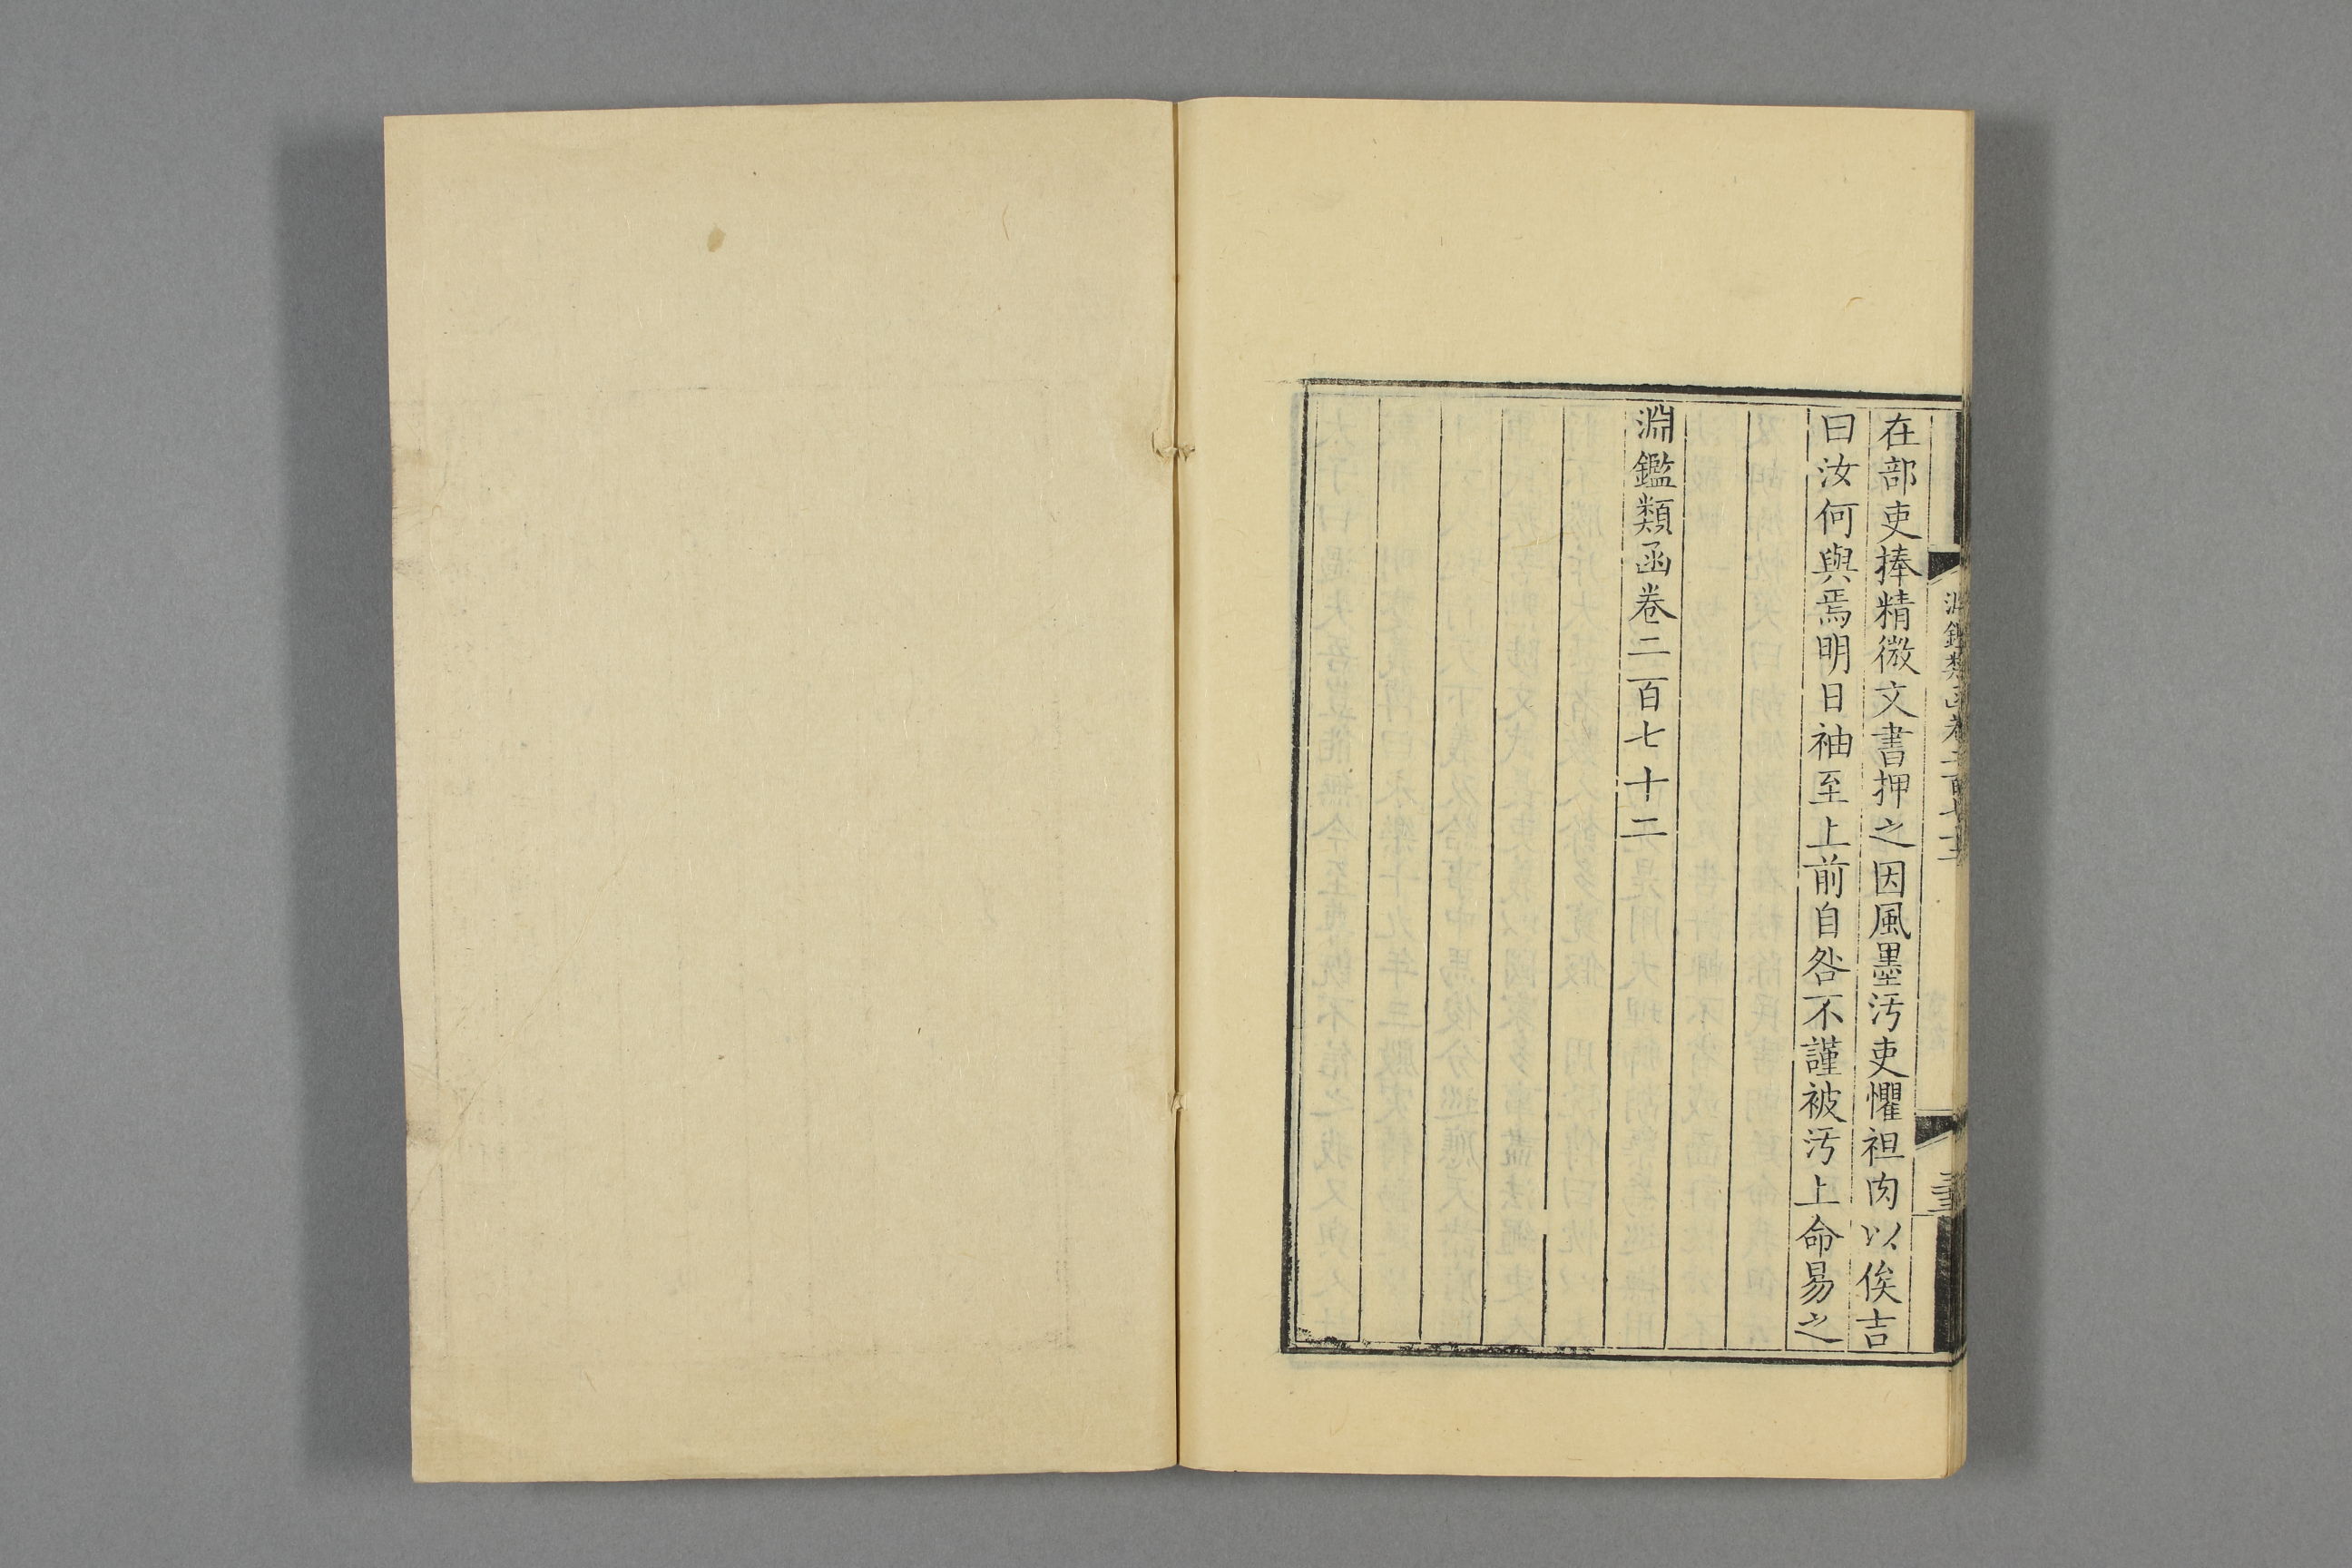 在部吏捧精微文書押之因風墨汚吏懼袒肉以俟吉
曰汝何與焉明日袖至上前自咎不謹被汚上命易之
淵鑑類函卷二百七十二